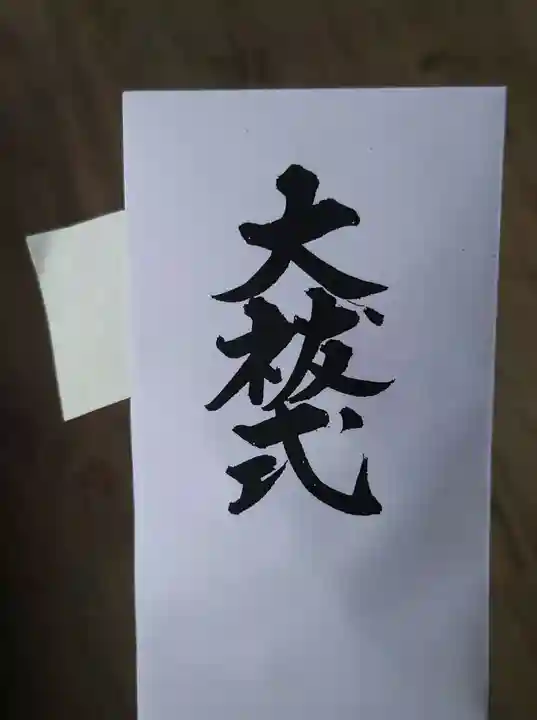 大祓式